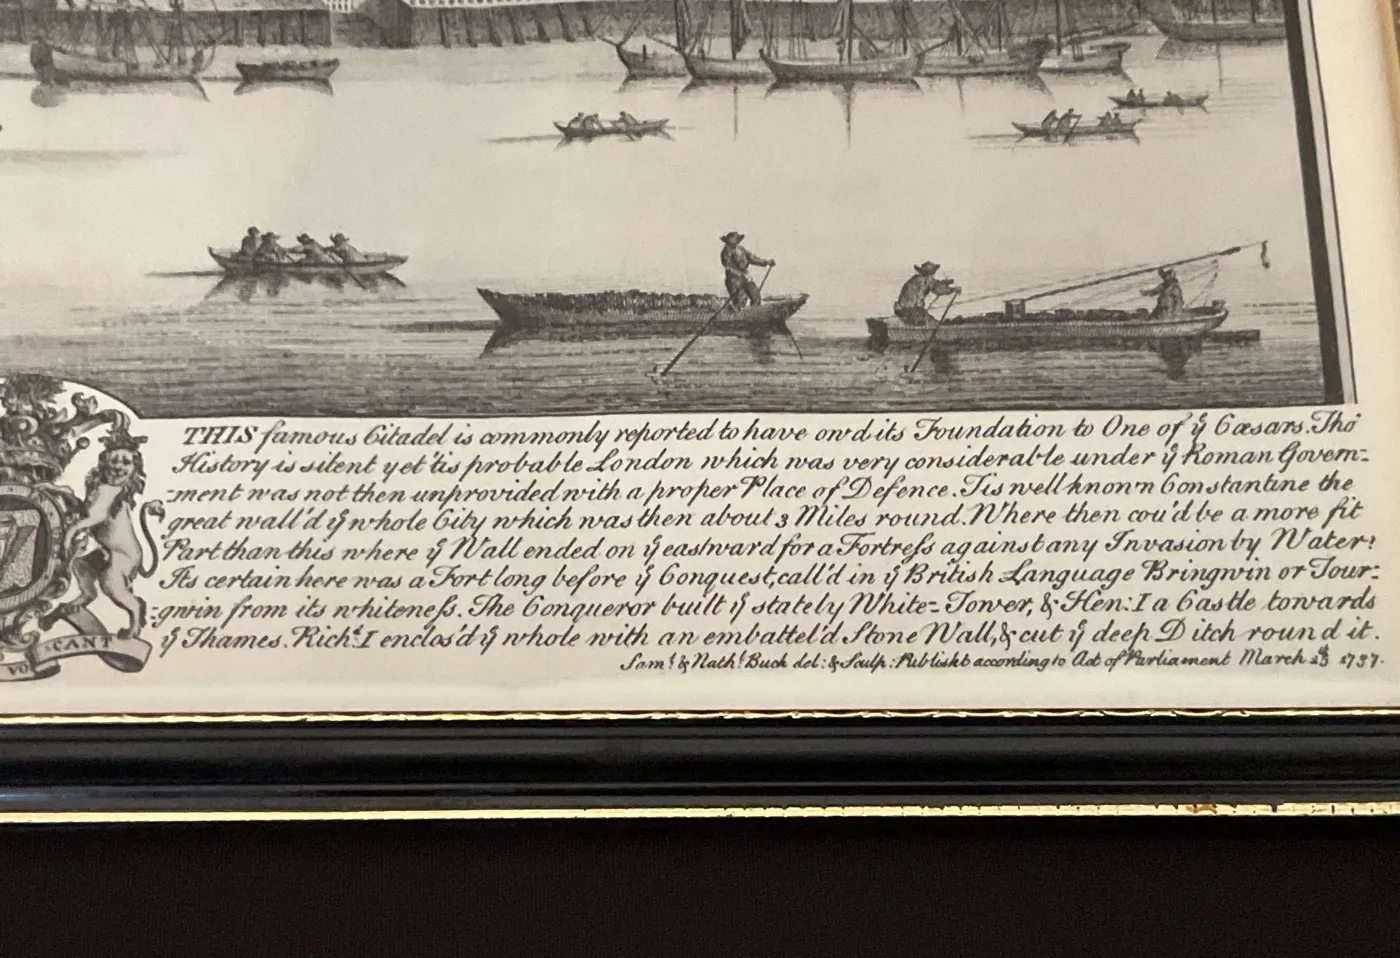 VO CANT
THIS famous Citadel is commonly reported to have ow'd its Foundation to One of yͤ Cæsars. Tho'
History is silent yet 'tis probable London which was very considerable under yͤ Roman Govern=
=ment was not then unprovided with a proper Place of Defence. Tis well known Constantine the
great wall'd yͤ whole City which was then about 3 Miles round. Where then cou'd be a more fit
Part than this where yͤ Wall ended on yͤ eastward for a Fortreſs against any Invasion by Water?
Its certain here was a Fort long before yͤ Conquest, call'd in yͤ British Language Bringwin or Tour=
=gwin from its whiteneſs. The Conqueror built yͤ stately White=Tower, & Hen: I a Castle towards
yͤ Thames. Richᵈ. I enclos'd yͤ whole with an embattel'd Stone Wall, & cut yͤ deep Ditch round it.
Samˡ. & Nathˡ. Buck del: & Sculp: Publisht according to Act of Parliament March 1737.